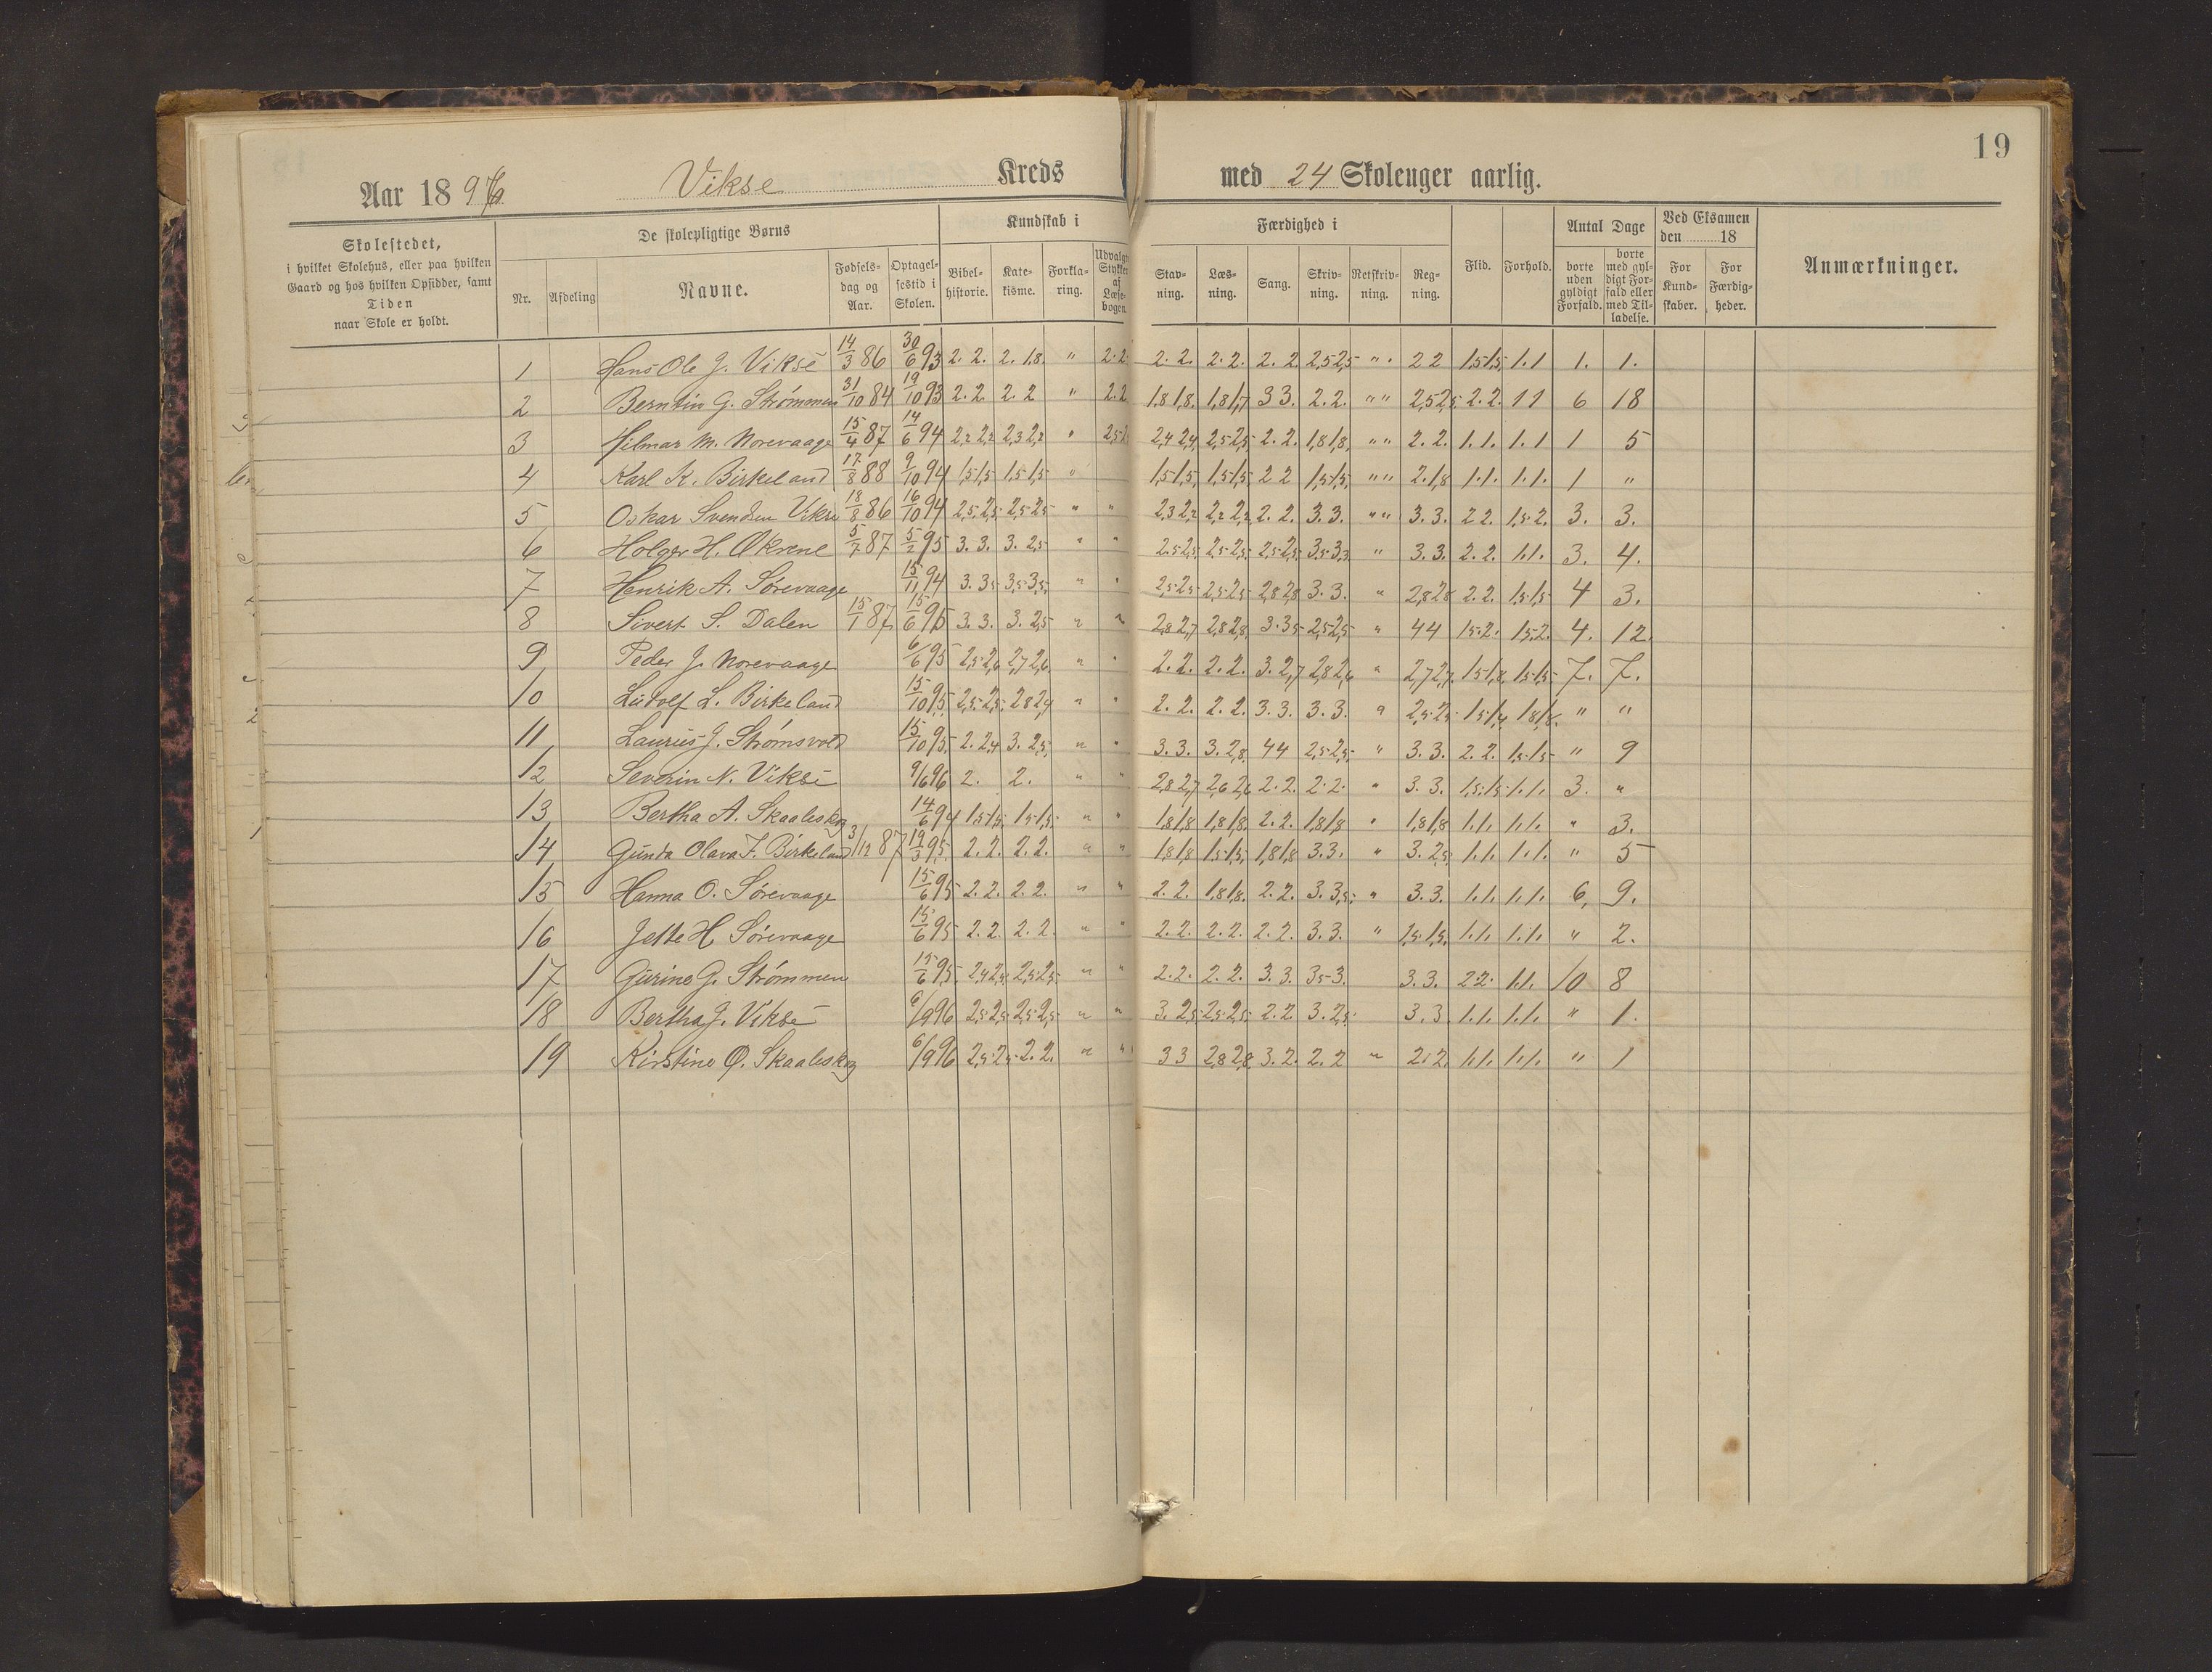 19
Aar 1896 Vikse Kreds med 24 Skoleuger aarlig.
Skolestedet, i hvilket Skolehus, eller paa hvilken Gaard og hos hvilken Opsidder, samt Tiden naar Skole er holdt.
De skolepligtige Børns
Nr. Afdeling Navne. Fødselsdag og Aar. Optagelsestid i Skolen.
Kundskab i
Bibelhistorie. Katekisme. Forklaring. Udvalgte Stykker af Læsebogen.
Færdighed i
Stavning. Læsning. Sang. Skrivning. Retskrivning. Regning.
Flid. Forhold.
Antal Dage
borte uden gyldigt Forfald. borte med gyldigt Forfald eller med Tilladelse.
Ved Eksamen den 18
For Kundskaber. For Færdigheder.
Anmærkninger.
1 Hans Ole J. Vikse 14/3 86 30/6 93 2. 2. 2. 1.8. " 2.2. 2. 2. 2. 2. 2. 2. 2,5 2,5 " " 2 2 1,5 1,5 1.1 1. 1.
2 Berntin G. Strømmen 31/10 84 19/10 93 2. 2. 2. 2 " 2.2 1,8 1,8. 1,8 1,7 3 3. 2. 2. " " 2,5 2,5 2. 2. 1 1 6 18
3 Hilmar M. Norevaage 15/4 87 14/6 94 2,2 2,2 2,3 2,2 " 2,4 2,4 2,5 2,5 2. 2. 1,8 1,8 " " 2. 2. 1. 1. 1. 1 1 5
4 Karl K. Birkeland 17/8 88 9/10 94 1,5 1,5 1,5 1,5 " 1,5 1,5 1,5 1,5 2 2 1,5 1,5 " " 2. 1,8 1. 1. 1. 1. 1 "
5 Oskar Svendsen Vikse 18/8 86 16/10 94 2,5 2,5 2,5 2,5 " " 2,3 2,2 2,2 2,2 2. 2. 3. 3. " " 3. 3. 2 2. 1,5 2. 3. 3.
6 Holger H. Økrene 5/7 87 5/2 95 3. 3. 3. 2,5 " " 2,5 2,5 2,5 2,5 2,5 2,5 3,5 3,3 " 3. 3. 2. 2. 1. 1. 3. 4.
7 Henrik A. Sørevaage 15/11 94 3. 3,5 3,5 3,5 " " 2,5 2,5 2,5 2,5 2,8 2,8 3. 3. " 2,8 2,8 2. 2. 1,5 1,5 4 3.
8 Sivert S. Dalen 15/1 87 15/6 95 3. 3. 3. 2,5 " " 2,8 2,7 2,8 2,8 3. 3,5 2,5 2,5 " 4 4 1,5. 2. 1,5. 2. 4. 12.
9 Peder J. Norevaage 6/6 95 2,5 2,6 2,7 2,6 " " 2. 2. 2. 2. 3. 2,7 2,8 2,6 " 2,7 2,7 1,5 1,8 1,5 1,5 7. 7.
10 Ludolf L. Birkeland 15/10 95 2,5 2,5 2,8 2,4 " " 2. 2. 2. 2. 3. 3. 3. 3. " 2,5 2,5 1,5 1,4 1,8 1,8 " "
11 Laurits J. Strømsvold 15/10 95 2. 2,4 3. 2,5 " " 3. 3. 3. 2,8 4 4 2,5 2,5 " 3. 3. 2. 2. 1,5 1,5 " 9
12 Severin N. Vikse 9/6 96 2. 2. " " 2,8 2,7 2,6 2,6 2. 2. 2. 2. " 3. 3. 1,5 1,5 1. 1. 3. "
13 Bertha A. Skaaleskog 14/6 94 1,5 1,5 1,5 1,5 " " 1,8 1,8 1,8 1,8 2. 2. 1,8 1,8 " 1,8 1,8 1. 1. 1. 1. " 3.
14 Gunda Olava F. Birkeland 3/12 87 19/3 95 2. 2. 2. 2. " " 1,8 1,8 1,5 1,5 1,8 1,8 3. 3. " 3. 2,5 1. 1. 1. 1. " 5
15 Hanna O. Sørevaage 15/6 95 2. 2. 2. 2. " " 2. 2. 1,8 1,8. 2. 2. 3. 3,5 " 3. 3. 1. 1. 1. 1. 6, 9.
16 Jette H. Sørevaage 15/6 95 2. 2. 2. 2. " " 2. 2. 2. 2. 2. 2. 3. 3. " 1,5 1,5 1. 1. 1. 1. " 2.
17 Gurine G. Strømmen 15/6 95 2,4 2,5 2,5 2,5 " " 2. 2. 2. 2. 3. 3. 3,5 3. 3. 3. 2 2. 1. 1. 10 8
18 Bertha J. Vikse 6/9 96 2,5 2,5 2,5 2,5 " " 3. 2,5 2,5 2,5 2. 2. 3. 2,5 3. 3 1. 1. 1. 1. " 1.
19 Kirstine O. Skaaleskog 6/9 96 2,5 2,5 2. 2. " " 3 3 2,8 2,8 3. 2. 2. 2 " 2. 2. 1. 1. 1. 1. " 1